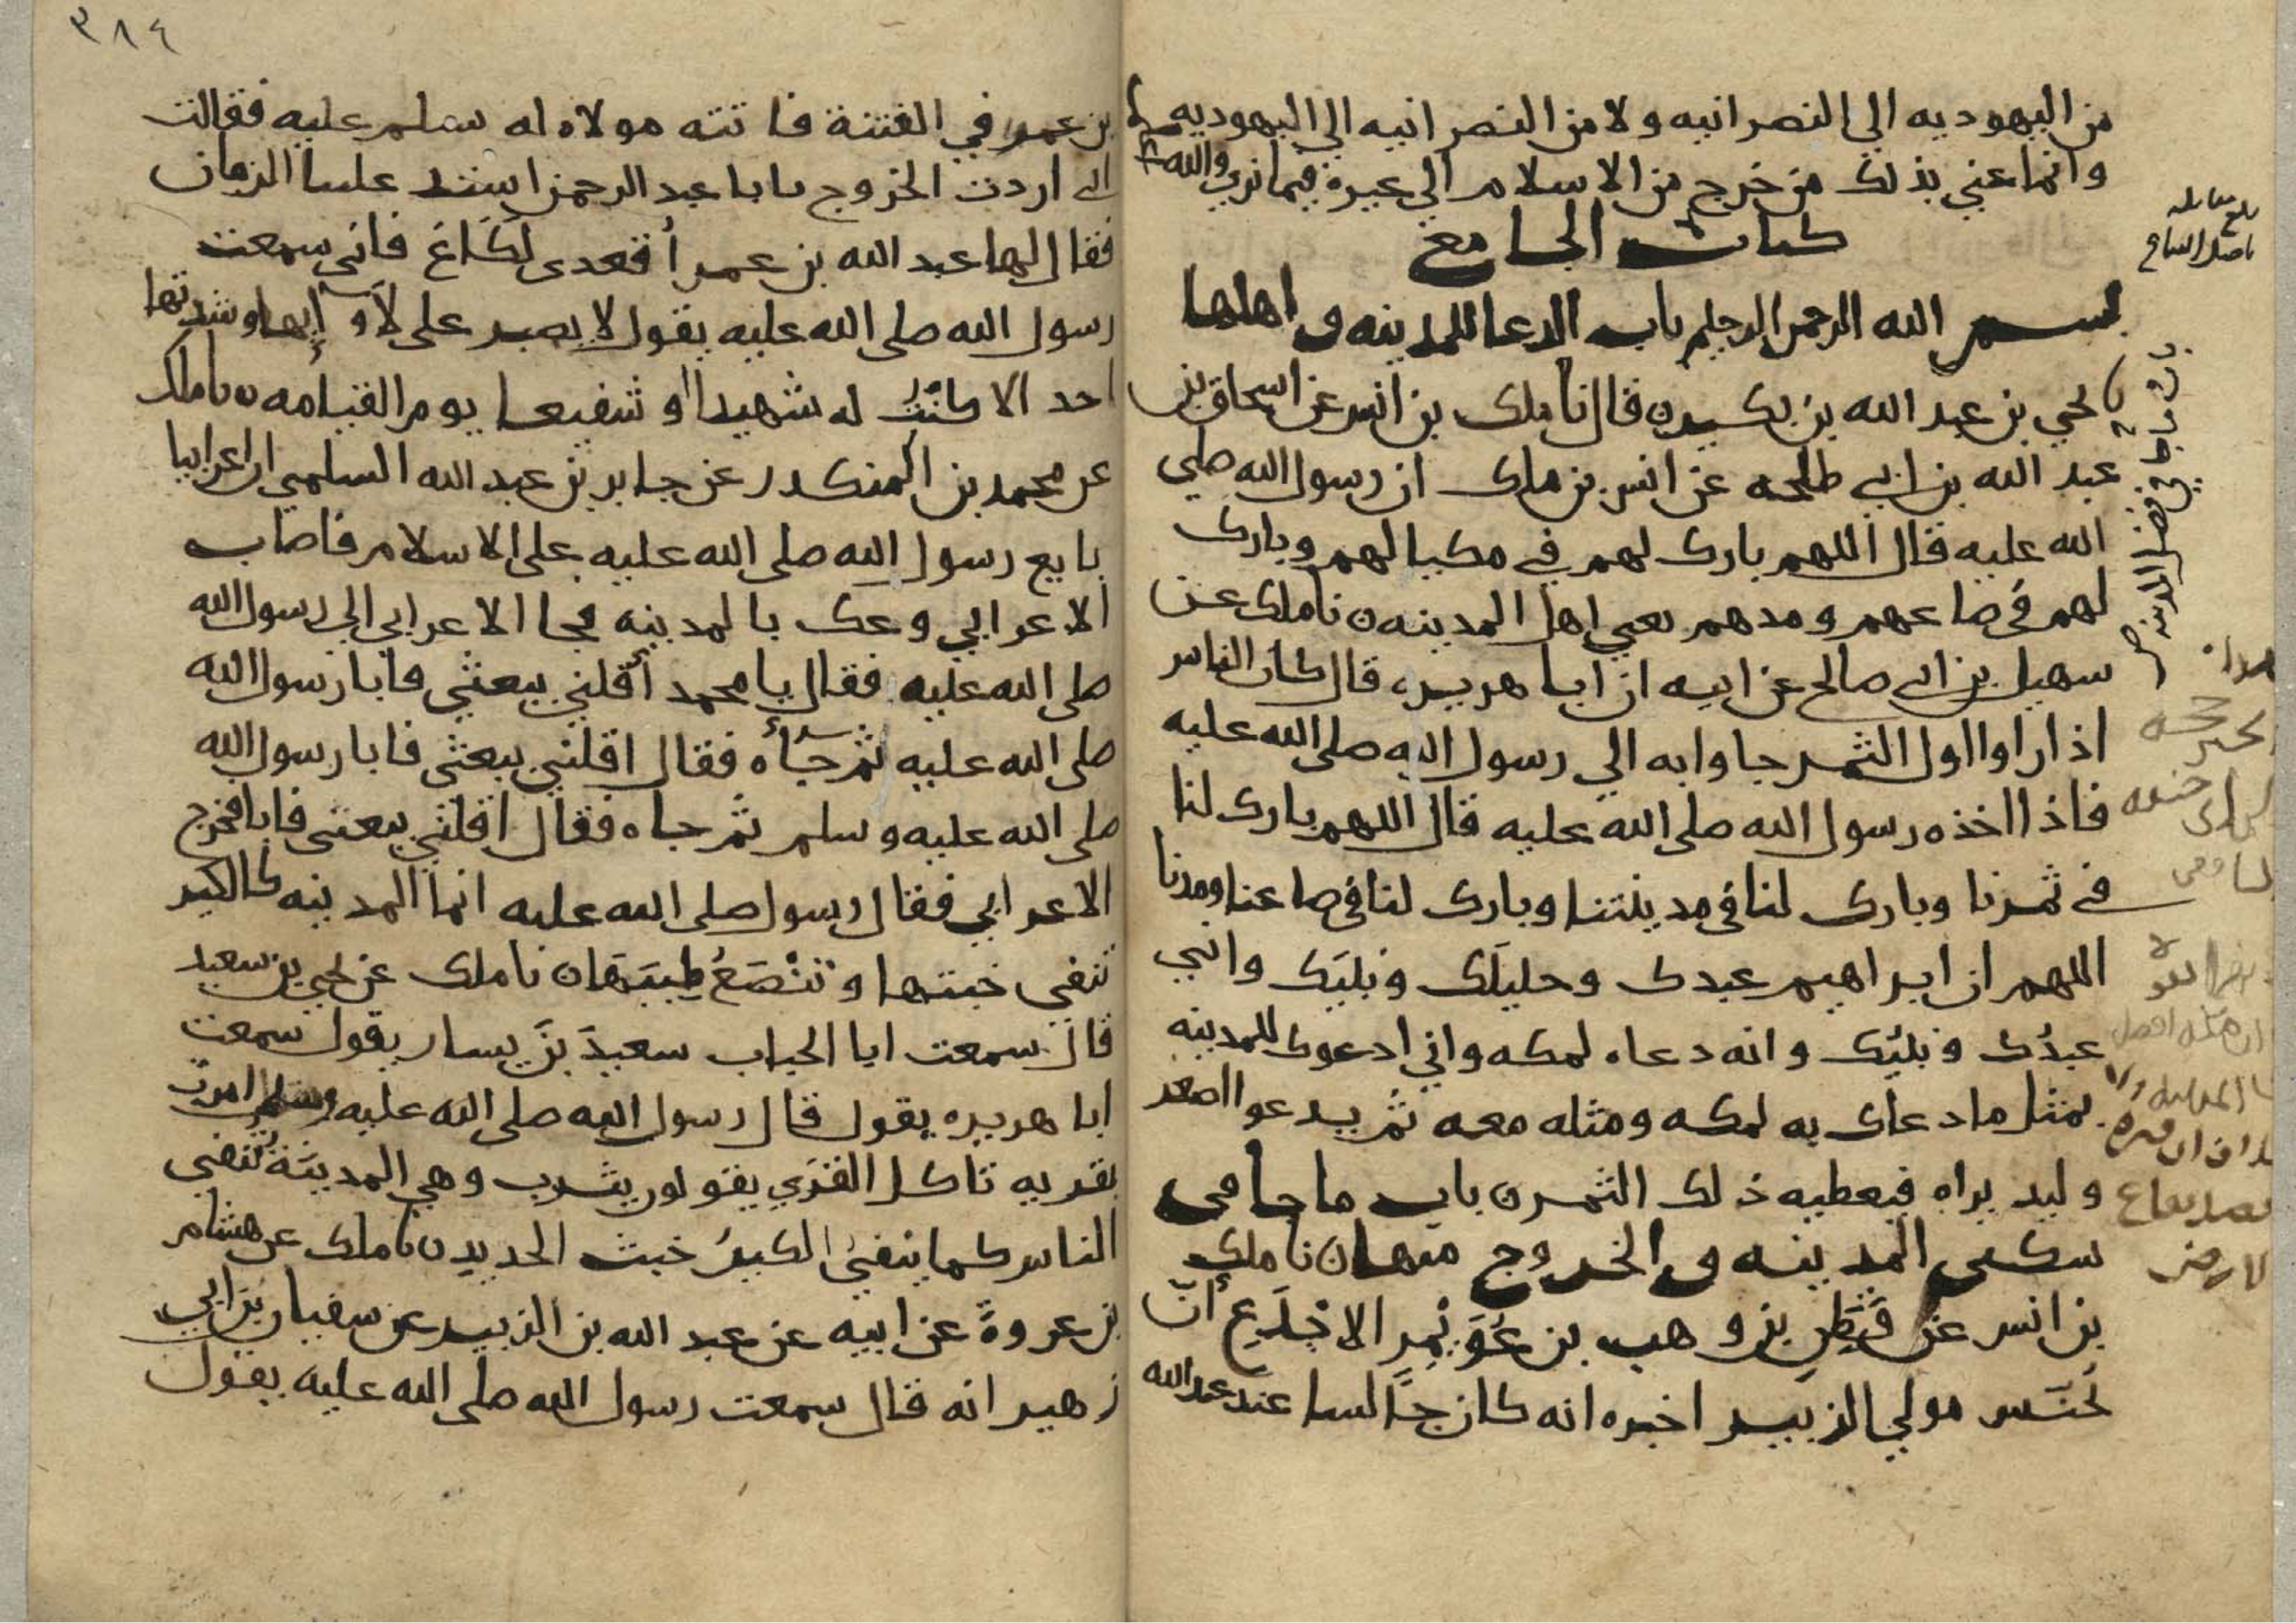 من اليهوديه الي النصرانيه ولا من النصرانيه الي اليهوديه
وانما عني بذلك من خرج من الاسلام الي غيره فيما نري والله
كتاب الجامع
بسم الله الرحمن الرحيم باب الدعا للمدينه و اهلها
يحيي بن عبد الله بن بكير ه قال نا ملك بن انس عن اسحاق بن
عبد الله بن ابي طلحه عن انس بن ملك ان رسول الله صلي
الله عليه قال اللهم بارك لهم في مكيالهم وبارك
لهم في صاعهم ومدهم يعني اهل المدينه ه نا ملك عن
سهيل بن ابي صالح عن ابيه ان ابا هريره قال كان الناس
اذا راوا اول الثمر جاوا به الي رسول الله صلى الله عليه
فاذا اخذه رسول الله صلى الله عليه قال اللهم بارك لنا
في ثمرنا وبارك لنا في مدينتنا وبارك لنا في صاعنا ومدنا
اللهم ان ابراهيم عبدك وخليلَك ونبيَك واني
عبدُك ونبيُك وانه دعاه لمكه واني ادعوك للمدينه
بمثل ما دعاك به لمكه ومثله معه ثم يدعوا اصغر
وليد يراه فيعطيه ذلك الثمر ه باب ما جا في
سكنى المدينه و الخروج منها ه نا ملك
بن انس عن قَطَنِ بن وهب بن عُوَيْمِر الاجْدَعِ أنّ
يُحَنَّس مولي الزبير اخبره انه كان جالسا عند عبد الله
باب ما جا في فضل المدينه
٣٨٤
بن عمر في الفتنة فاتته مولاه له تسلم عليه فقالت
اني اردت الخروج يابا عبد الرحمن اشتد علينا الزمان
فقال لها عبد الله بن عمر أقعدى لَكَاعِ فاني سمعت
رسول الله صلى الله عليه يقول لا يصبر على لأوآئها وشدتها
احد الا كنْتُ له شهيدا او شفيعا يوم القيامه ه نا ملك
عن محمد بن المنكدر عن جابر بن عبد الله السلمي ان اعرابيا
بايع رسول الله صلى الله عليه على الاسلام فاصاب
الاعرابي وعك بالمدينه فجا الاعرابي الي رسول الله
صلى الله عليه فقال يا محمد أقلني بيعتي فابا رسول الله
صلى الله عليه ثم جآءه فقال اقلني بيعتي فابا رسول الله
صلى الله عليه وسلم ثم جاه فقال اقلني بيعتي فابا فخرج
الاعرابي فقال رسول صلى الله عليه انما المدينه كالكير
تنفي خبثها وتنْصَعُ طِيبَهَا ه نا ملك عن يحيي بن سعيد
قال سمعت ابا الحباب سعيدَ بنَ يسار يقول سمعت
ابا هريره يقول قال رسول الله صلى الله عليه وسلم امرت
بقريه تاكل القري يقولون يثرب وهي المدينَة تنفي
الناس كما ينفي الكيرُ خبث الحديد ه نا ملك عن هشام
بن عروةَ عن ابيه عن عبد الله بن الزبير عن سفيان بن ابي
زهير انه قال سمعت رسول الله صلى الله عليه يقول